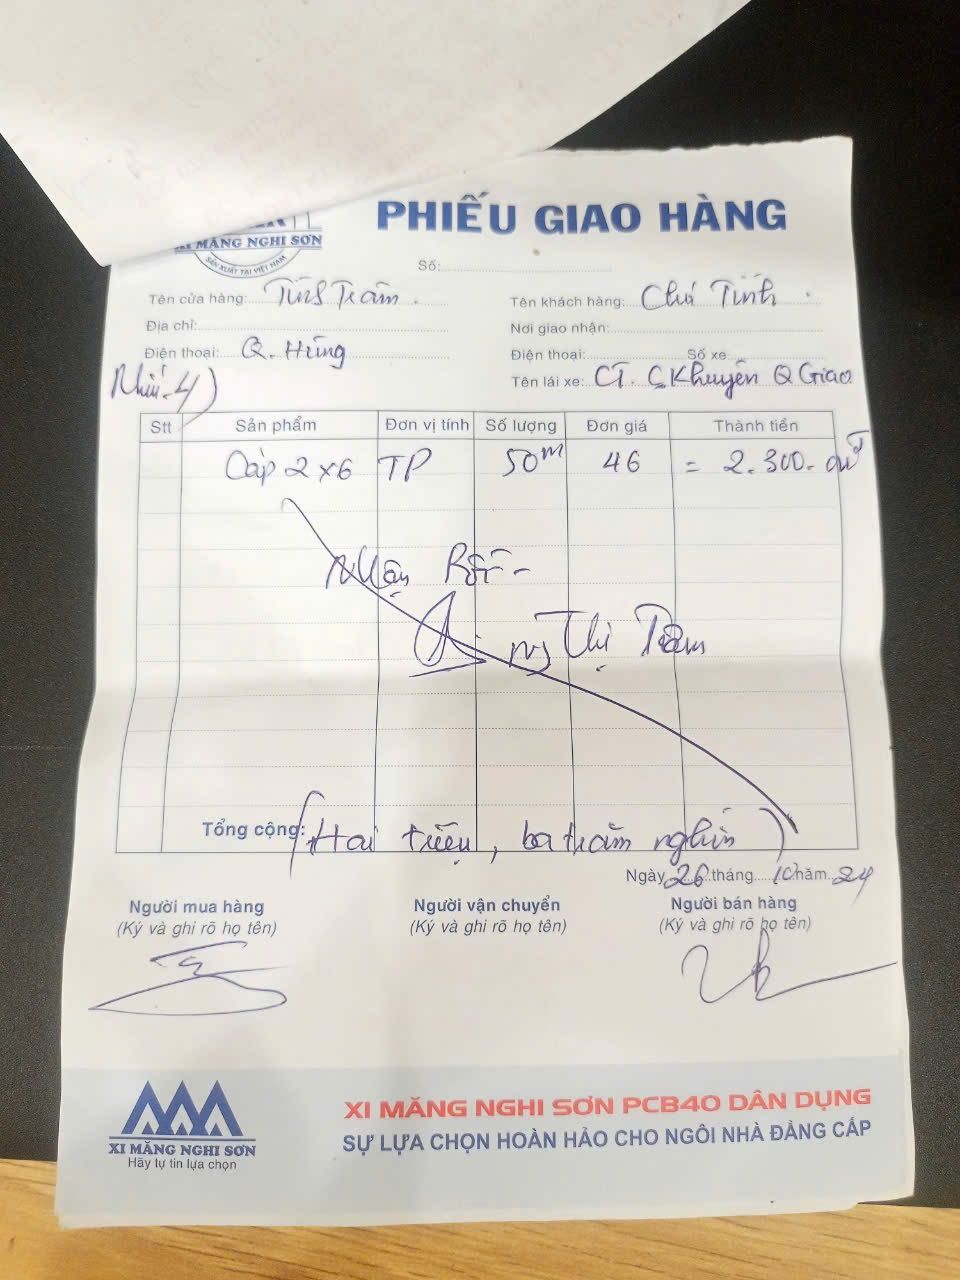 PHIẾU GIAO HÀNG
XI MĂNG NGHI SƠN
SẢN XUẤT TẠI VIỆT NAM
Số:
Tên cửa hàng: Tính Trâm. Tên khách hàng: Chú Tính.
Địa chỉ: Nơi giao nhận:
Điện thoại: Q. Hùng Điện thoại: Số xe:
Tên lái xe: CT. C Khuyên Q Giao
Stt Sản phẩm Đơn vị tính Số lượng Đơn giá Thành tiền
Cáp 2 x 6 TP 50m 46 = 2.300.
Nhận Rồi -
Thị Trâm
Tổng cộng: (Hai triệu, ba trăm nghìn)
Ngày 26 tháng 10 năm 24
Người mua hàng Người vận chuyển Người bán hàng
(Ký và ghi rõ họ tên) (Ký và ghi rõ họ tên) (Ký và ghi rõ họ tên)
XI MĂNG NGHI SƠN
Hãy tự tin lựa chọn
XI MĂNG NGHI SƠN PCB40 DÂN DỤNG
SỰ LỰA CHỌN HOÀN HẢO CHO NGÔI NHÀ ĐẲNG CẤP